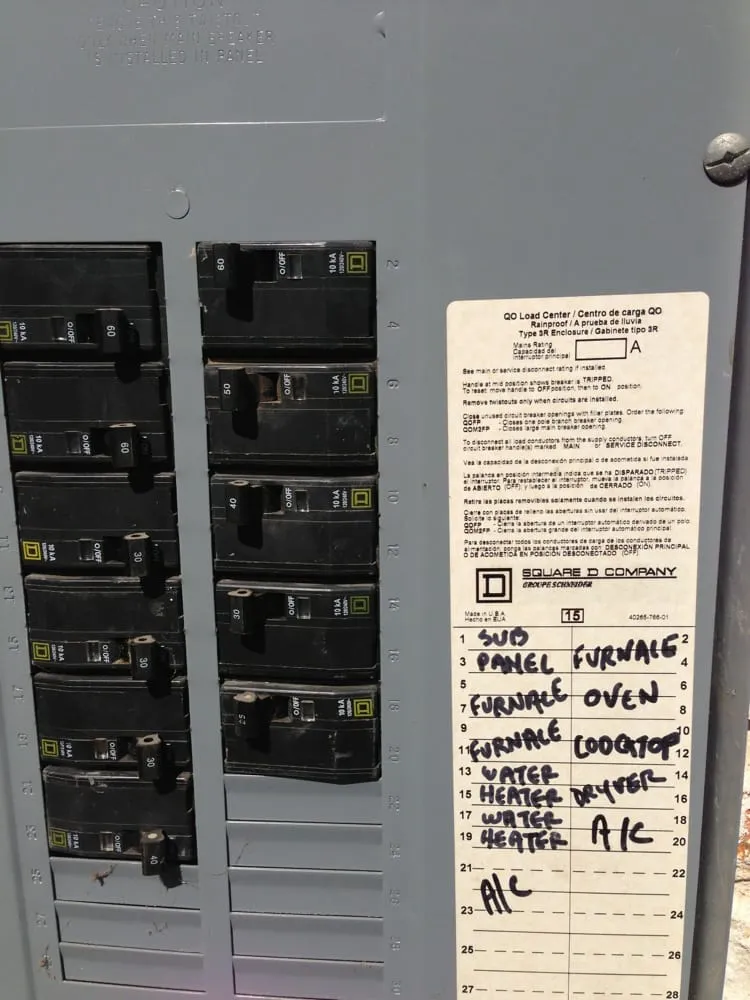 CAUTION
REMOVE THIS TWISTOUT
ONLY WHEN MAIN BREAKER
IS INSTALLED IN PANEL
60
O/OFF
10 kA
120/240~
2
4
60
O/OFF
10 kA
50
O/OFF
10 kA
120/240~
6
8
60
O/OFF
10 kA
40
O/OFF
10 kA
120/240~
10
12
30
O/OFF
10 kA
11
30
O/OFF
10 kA
120/240~
14
16
30
O/OFF
10 kA
13
15
25
O/OFF
10 kA
120/240~
18
20
30
O/OFF
10 kA
17
19
40
O/OFF
10 kA
21
23
22
24
25
26
27
28
30
QO Load Center / Centro de carga QO
Rainproof / A prueba de lluvia
Type 3R Enclosure / Gabinete tipo 3R
Mains Rating
Capacidad del
interruptor principal
A
See main or service disconnect rating if installed.
Handle at mid position shows breaker is TRIPPED.
To reset move handle to OFF position, then to ON position.
Remove twistouts only when circuits are installed.
Close unused circuit breaker openings with filler plates. Order the following:
QOFP - Closes one pole branch breaker opening.
QOM2FP - Closes large main breaker opening.
To disconnect all load conductors from the supply conductors, turn OFF
circuit breaker handle(s) marked MAIN or SERVICE DISCONNECT.
Vea la capacidad de la desconexión principal o de acometida si fue instalada
La palanca en posición intermedia indica que se ha DISPARADO (TRIPPED)
el interruptor. Para restablecer el interruptor, mueva la palanca a la posición
de ABIERTO (OFF), y luego a la posición de CERRADO (ON).
Retire las placas removibles solamente cuando se instalen los circuitos.
Cierre con placas de relleno las aberturas sin usar del interruptor automático.
Solicite lo siguiente:
QOFP - Cierra la abertura de un interruptor automático derivado de un polo.
QOM2FP - Cierra la abertura grande del interruptor automático principal.
Para desconectar todos los conductores de carga de los conductores de
alimentación, ponga las palancas marcadas con DESCONEXIÓN PRINCIPAL
O DE ACOMETIDA EN POSICIÓN DESCONECTADO (OFF).
SQUARE D COMPANY
GROUPE SCHNEIDER
Made in U.S.A.
Hecho en EUA
15
40265-766-01
1 SUB 2
3 PANEL FURNALE 4
5 6
7 FURNALE OVEN 8
9 10
11 FURNALE COOCKTOP 12
13 WATER 14
15 HEATER DRYVER 16
17 WATER 18
19 HEATER A/C 20
21 22
A/C
23 24
25 26
27 28